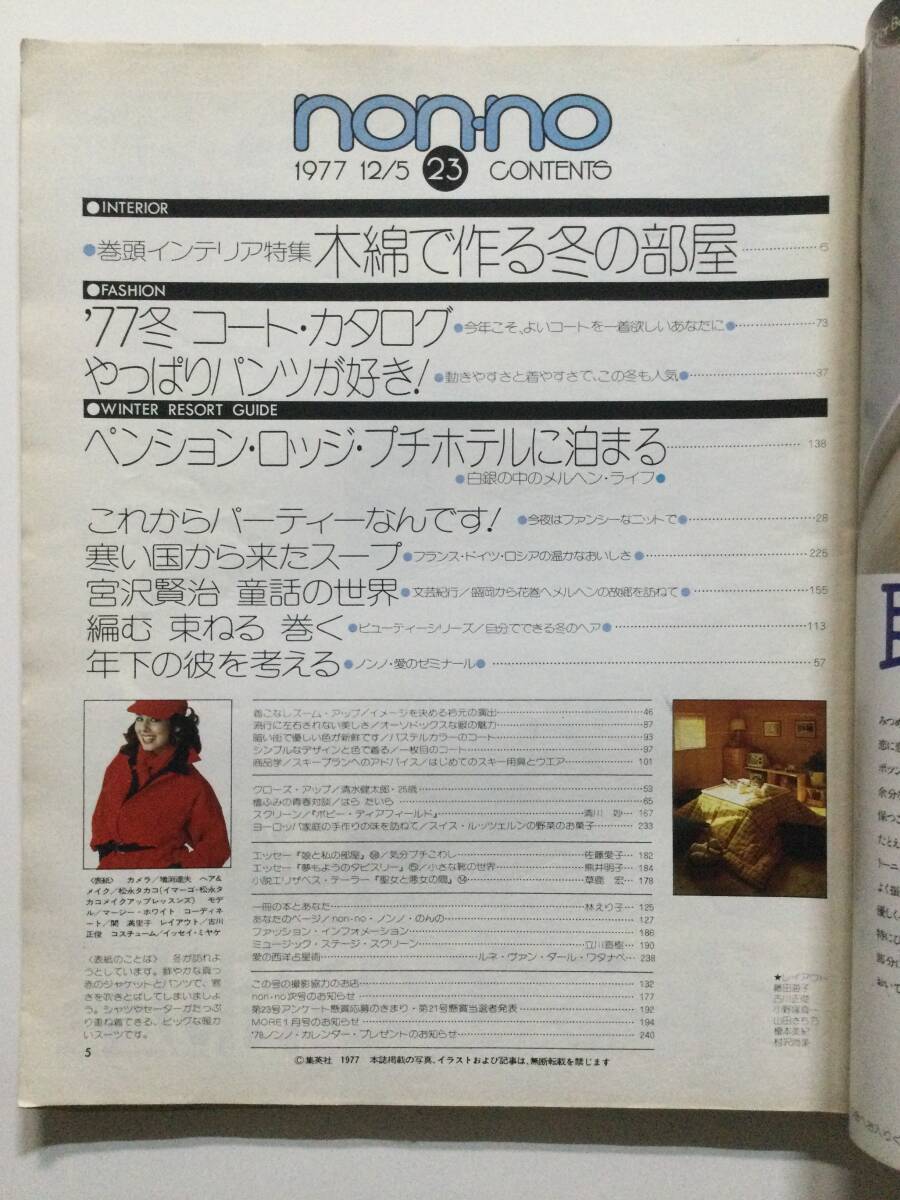 non·no
1977 12/5 23 CONTENTS
●INTERIOR
●巻頭インテリア特集 木綿で作る冬の部屋 6
●FASHION
'77冬 コート・カタログ ●今年こそ、よいコートを一着欲しいあなたに● 73
やっぱりパンツが好き! ●動きやすさと着やすさで、この冬も人気● 37
●WINTER RESORT GUIDE
ペンション・ロッジ・プチホテルに泊まる 138
●白銀の中のメルヘン・ライフ●
これからパーティーなんです! ●今夜はファンシーなニットで● 28
寒い国から来たスープ ●フランス・ドイツ・ロシアの温かなおいしさ● 225
宮沢賢治 童話の世界 ●文芸紀行/盛岡から花巻へメルヘンの故郷を訪ねて● 155
編む 束ねる 巻く ●ビューティーシリーズ/自分でできる冬のヘア● 113
年下の彼を考える ●ノンノ・愛のゼミナール● 57
着こなしズーム・アップ/イメージを決める衿元の演出 46
流行に左右されない美しさ/オーソドックスな服の魅力 87
暗い街で優しい色が新鮮です/パステルカラーのコート 93
シンプルなデザインと色で着る/一枚目のコート 97
商品学/スキープランへのアドバイス/はじめてのスキー用具とウエア 101
クローズ・アップ/清水健太郎・25歳 53
檀ふみの青春対談/はら たいら 65
スクリーン/『ボビー・ディアフィールド』 清川 妙 167
ヨーロッパ家庭の手作りの味を訪ねて/スイス・ルッツェルンの野菜のお菓子 233
エッセー『娘と私の部屋』 /気分プチこわし 佐藤愛子 182
エッセー『夢もようのタピスリー』⑮/小さな靴の世界 熊井明子 184
小説エリザベス・テーラー『聖女と悪女の間』⑭ 草鹿 宏 178
一冊の本とあなた 林えり子 125
あなたのページ/non-no・ノンノ・のんの 127
ファッション・インフォメーション 186
ミュージック・ステージ・スクリーン 立川直樹 190
愛の西洋占星術 ルネ・ヴァン・ダール・ワタナベ 238
この号の撮影協力のお店 132
non-no次号のお知らせ 177
第23号アンケート懸賞応募のきまり・第21号懸賞当選者発表 192
MORE1月号のお知らせ 194
'78ノンノ・カレンダー・プレゼントのお知らせ 240
〈表紙〉 カメラ/増渕達夫 ヘア&
メイク/松永タカコ(イマーゴ・松永タ
カコメイクアップレッスンズ) モデ
ル/マージー・ホワイト コーディネ
ート/関 満里子 レイアウト/古川
正俊 コスチューム/イッセイ・ミヤケ
〈表紙のことば〉 冬が訪れよ
うとしています。鮮やかな真っ
赤のジャケットとパンツで、寒
さを吹きとばしてしまいましょ
う。シャツやセーターがたっぷ
り重ね着できる、ビッグな暖か
いスーツです。
★レイアウト
藤田益子
古川正俊
山田さち乃
榎本美紀
5
©集英社 1977 本誌掲載の写真、イラストおよび記事は、無断転載を禁じます
みつめ
恋に
ポッツ
余分な
保つこ
たとえ
トーニ
よく描
優しく
特にひ
部分に
おいて